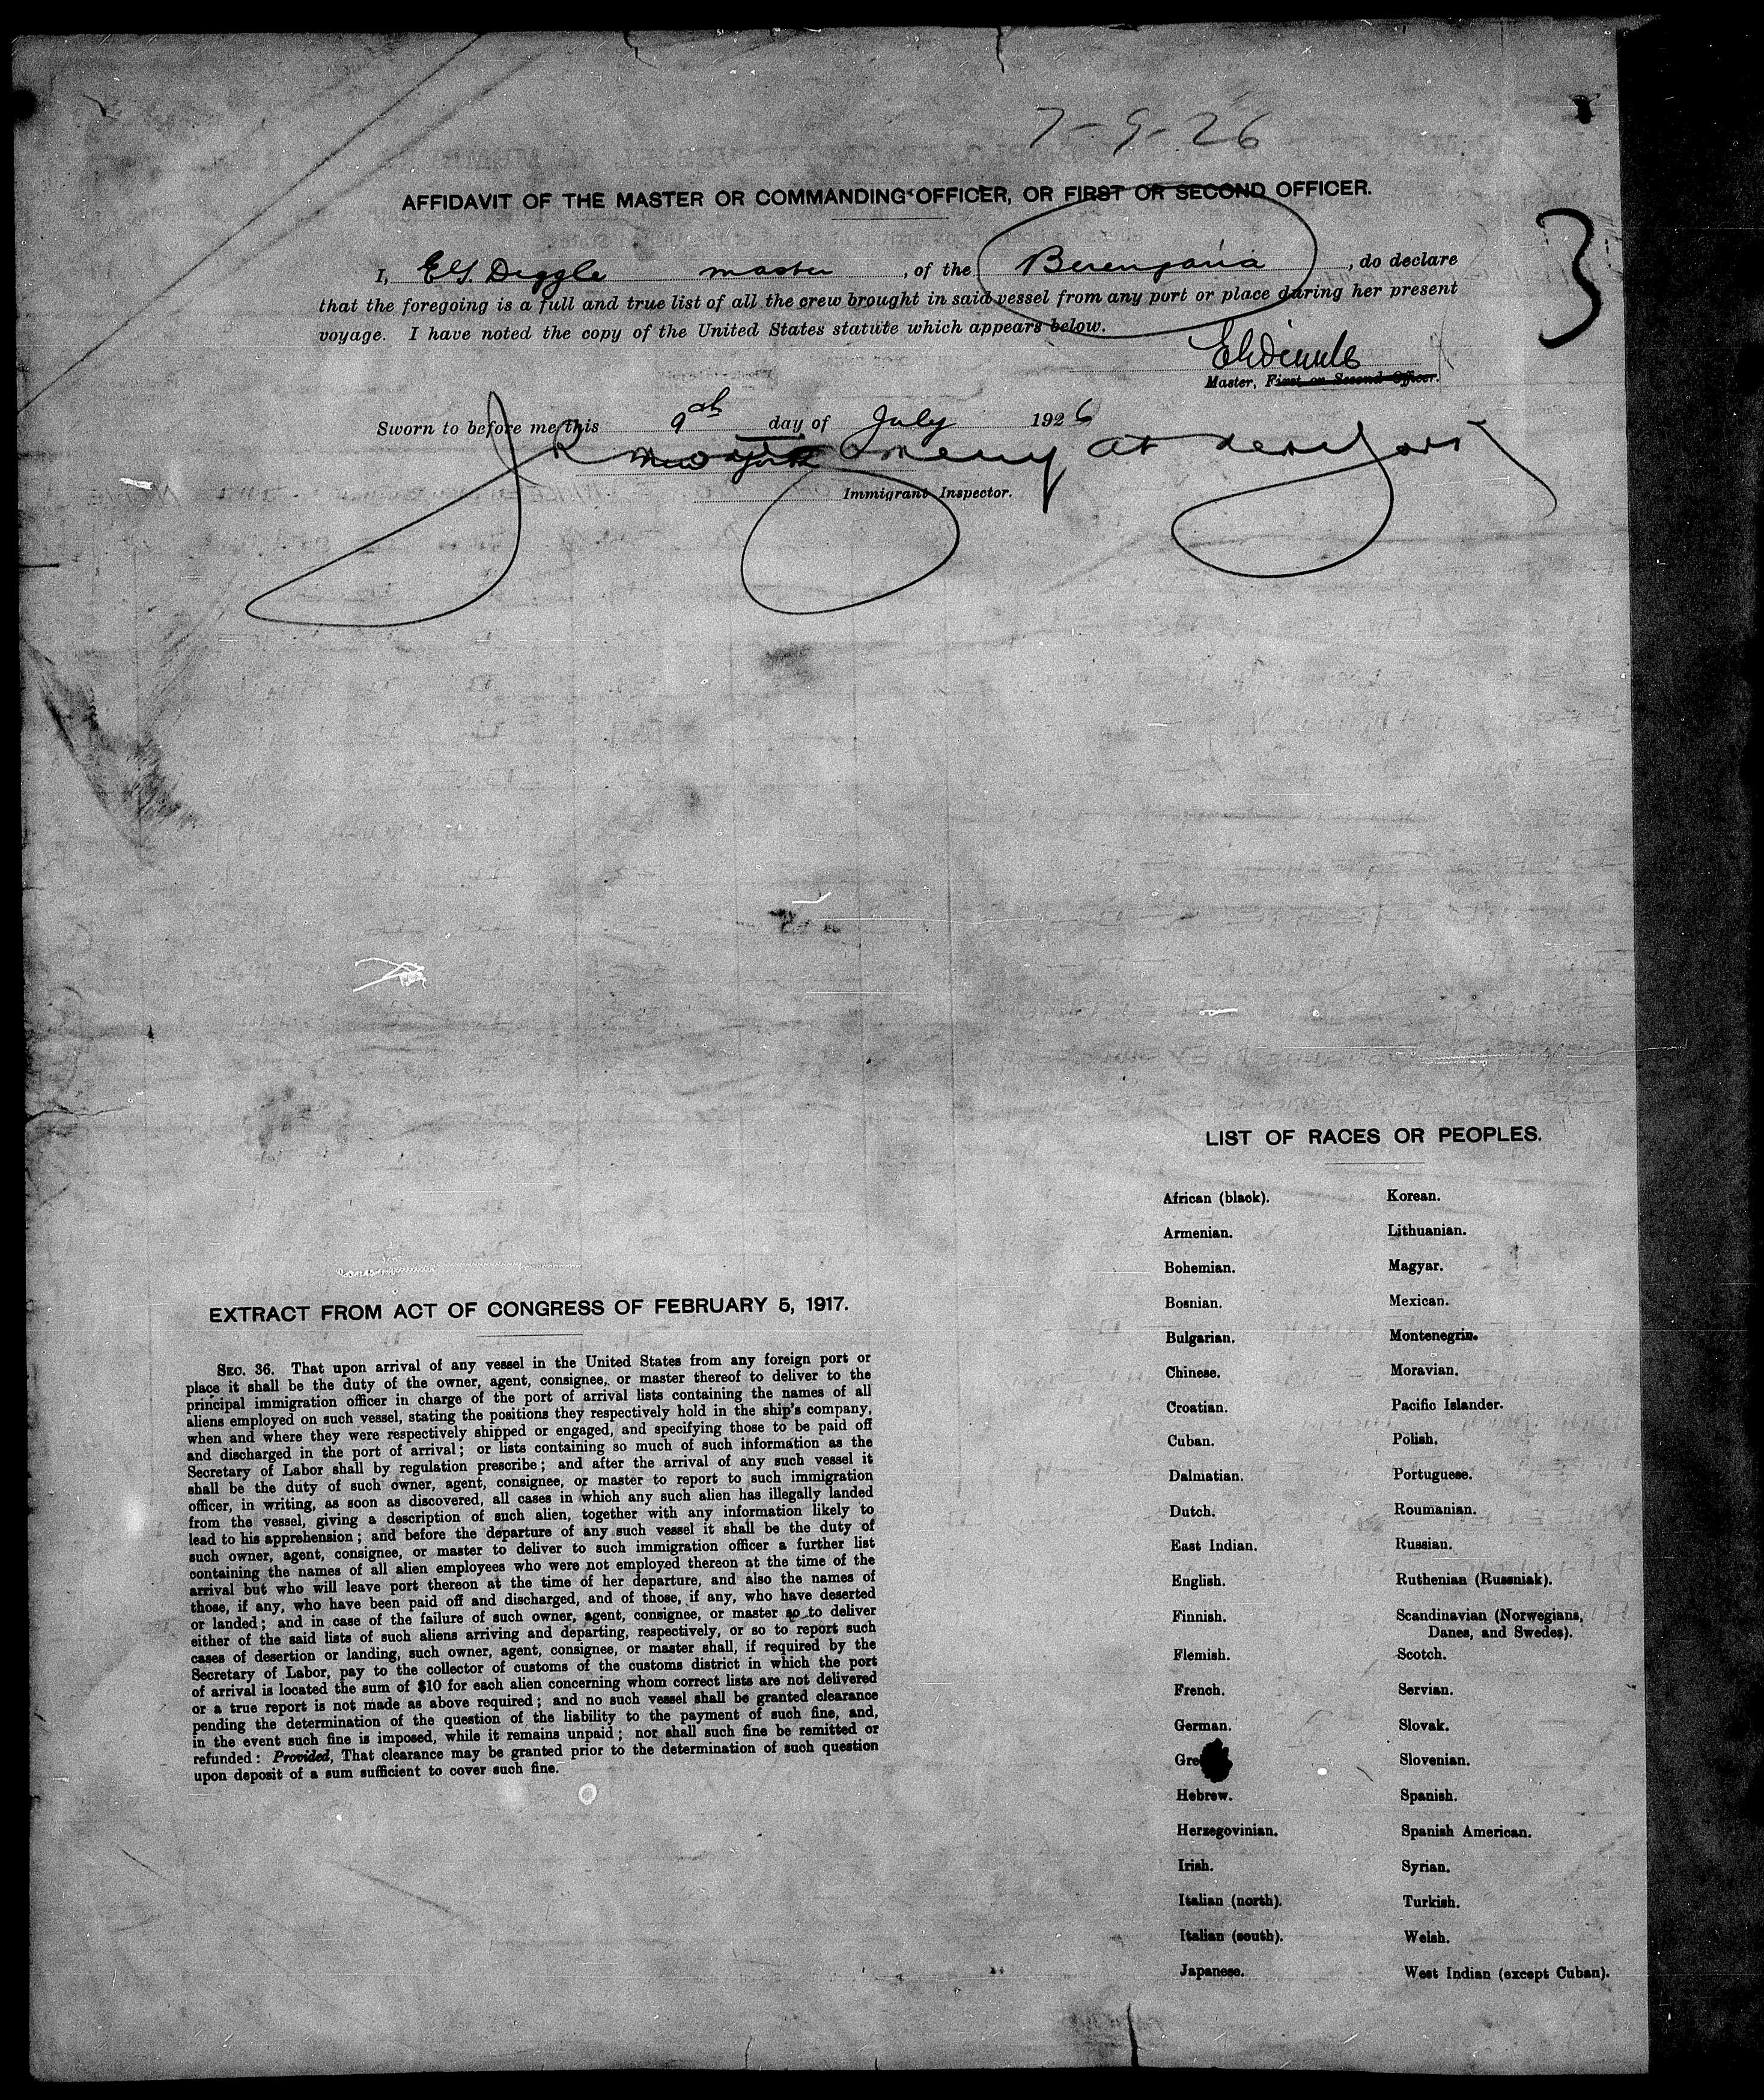 7-9-26
AFFIDAVIT OF THE MASTER OR COMMANDING OFFICER, OR FIRST OR SECOND OFFICER.
3
I, E.G. Diggle master , of the Berengaria , do declare
that the foregoing is a full and true list of all the crew brought in said vessel from any port or place during her present
voyage. I have noted the copy of the United States statute which appears below.
Master, First or Second Officer.
Sworn to before me this 9th day of July 1926
New York at New York
Immigrant Inspector.
EXTRACT FROM ACT OF CONGRESS OF FEBRUARY 5, 1917.
SEC. 36. That upon arrival of any vessel in the United States from any foreign port or
place it shall be the duty of the owner, agent, consignee, or master thereof to deliver to the
principal immigration officer in charge of the port of arrival lists containing the names of all
aliens employed on such vessel, stating the positions they respectively hold in the ship's company,
when and where they were respectively shipped or engaged, and specifying those to be paid off
and discharged in the port of arrival; or lists containing so much of such information as the
Secretary of Labor shall by regulation prescribe; and after the arrival of any such vessel it
shall be the duty of such owner, agent, consignee, or master to report to such immigration
officer, in writing, as soon as discovered, all cases in which any such alien has illegally landed
from the vessel, giving a description of such alien, together with any information likely to
lead to his apprehension; and before the departure of any such vessel it shall be the duty of
such owner, agent, consignee, or master to deliver to such immigration officer a further list
containing the names of all alien employees who were not employed thereon at the time of the
arrival but who will leave port thereon at the time of her departure, and also the names of
those, if any, who have been paid off and discharged, and of those, if any, who have deserted
or landed; and in case of the failure of such owner, agent, consignee, or master so to deliver
either of the said lists of such aliens arriving and departing, respectively, or so to report such
cases of desertion or landing, such owner, agent, consignee, or master shall, if required by the
Secretary of Labor, pay to the collector of customs of the customs district in which the port
of arrival is located the sum of $10 for each alien concerning whom correct lists are not delivered
or a true report is not made as above required; and no such vessel shall be granted clearance
pending the determination of the question of the liability to the payment of such fine, and,
in the event such fine is imposed, while it remains unpaid; nor shall such fine be remitted or
refunded: Provided, That clearance may be granted prior to the determination of such question
upon deposit of a sum sufficient to cover such fine.
LIST OF RACES OR PEOPLES.
African (black).
Armenian.
Bohemian.
Bosnian.
Bulgarian.
Chinese.
Croatian.
Cuban.
Dalmatian.
Dutch.
East Indian.
English.
Finnish.
Flemish.
French.
German.
Gre
Hebrew.
Herzegovinian.
Irish.
Italian (north).
Italian (south).
Japanese.
Korean.
Lithuanian.
Magyar.
Mexican.
Montenegrin.
Moravian.
Pacific Islander.
Polish.
Portuguese.
Roumanian.
Russian.
Ruthenian (Russniak).
Scandinavian (Norwegians,
Danes, and Swedes).
Scotch.
Servian.
Slovak.
Slovenian.
Spanish.
Spanish American.
Syrian.
Turkish.
Welsh.
West Indian (except Cuban).